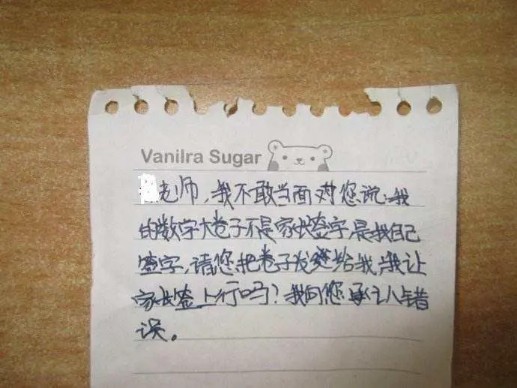 Vanilra Sugar
老师，我不敢当面对您说：我
的数学大卷子不是家长签字是我自己
签字，请您把卷子发还给我，我让
家长签上行吗？我向您承认错
误。